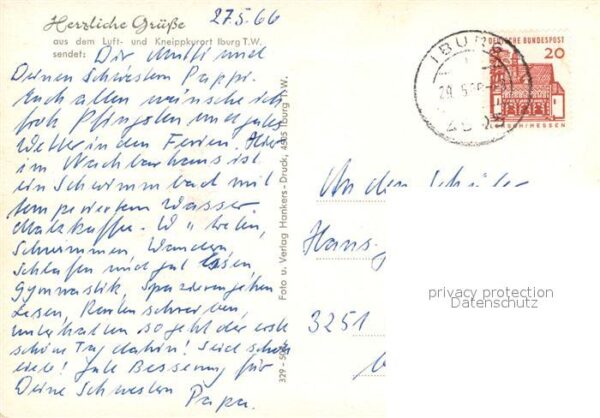 Herzliche Grüße
27.5.66
aus dem Luft- und Kneippkurort Iburg T.W.
sendet: Dir Mutti und
Deinen Schwestern Pappi.
Euch allen wünsche ich
froh Pfingsten und gutes
Wetter in den Ferien. Hier
im Nachbarhaus ist
ein Schwimmbad mit
temperiertem Wasser
Malzkaffee.
Schwimmen, Wandern,
Schlafen und gut Essen,
Gymnastik, Spazierengehen
Lesen, Karten schreiben,
unterhalten so geht der erste
schöne Tag dahin! Seid schön
Gute Besserung für
Deine Schwestern
Papa.
Foto u. Verlag Hankers-Druck, 4505 Iburg T.W.
329 - 50
IBURG
DEUTSCHE BUNDESPOST
20
An den Schüler
Hans-
3251
privacy protection
Datenschutz